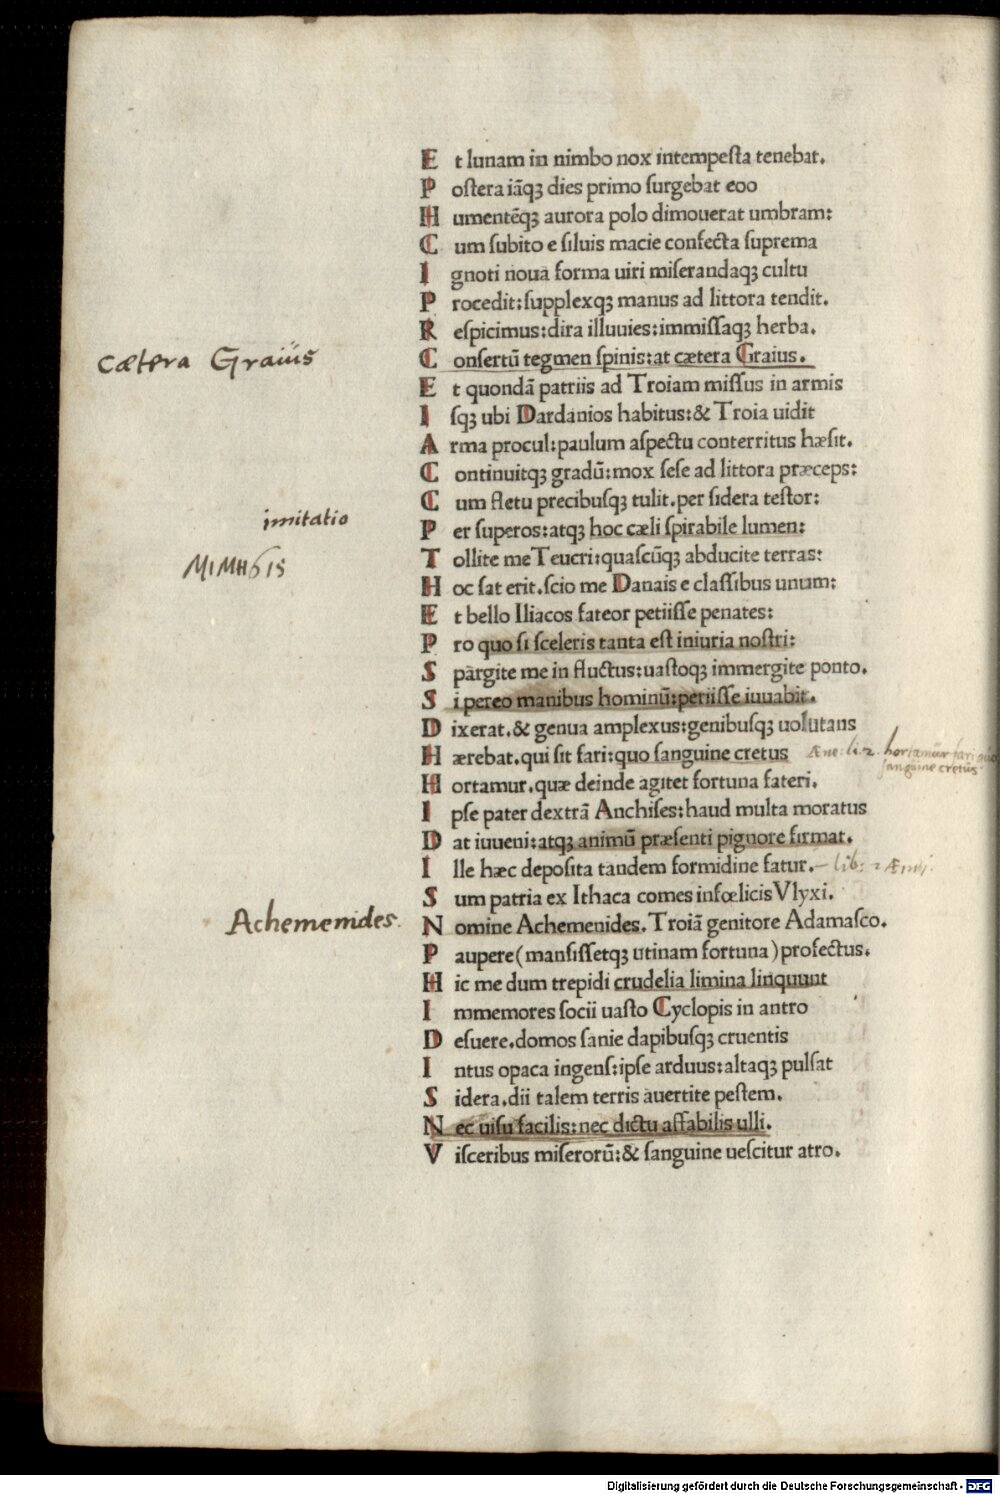 Et lunam in nimbo nox intempeſta tenebat.
Poſtera iāqꝫ dies primo ſurgebat eoo
Humentēqꝫ aurora polo dimouerat umbram:
Cum ſubito e ſiluis macie confecta ſuprema
Ignoti noua forma uiri miſerandaqꝫ cultu
Procedit:ſupplexqꝫ manus ad littora tendit.
Reſpicimus:dira illuuies:immiſſaqꝫ herba.
cætera Graiüs
Conſertū tegmen ſpinis:at cætera Graius.
Et quondā patriis ad Troiam miſſus in armis
Iſqꝫ ubi Dardanios habitus:& Troia uidit
Arma procul:paulum aſpectu conterritus hæſit.
Continuitqꝫ gradū:mox ſeſe ad littora præceps:
Cum fletu precibuſqꝫ tulit.per ſidera teſtor:
imitatio
Per ſuperos:atqꝫ hoc cæli ſpirabile lumen:
Tollite me Teucri:quaſcūqꝫ abducite terras:
Hoc ſat erit.ſcio me Danais e claſſibus unum:
Et bello Iliacos fateor petiiſſe penates:
Pro quo ſi ſceleris tanta eſt iniuria noſtri:
Spargite me in fluctus:uaſtoqꝫ immergite ponto.
Si pereo manibus hominū:periiſſe iuuabit.
Dixerat.& genua amplexus:genibuſqꝫ uolutans
Hærebat.qui ſit fari:quo ſanguine cretus Æne: li.2. hortamur fari quo
ſanguine cretus
Hortamur.quæ deinde agitet fortuna fateri.
Ipſe pater dextrā Anchiſes:haud multa moratus
Dat iuueni:atqꝫ animū præſenti pignore firmat.
Ille hæc depoſita tandem formidine fatur. lib: 2
Sum patria ex Ithaca comes infœlicis Vlyxi.
Achemenides.
Nomine Achemenides.Troiā genitore Adamaſco.
Paupere(manſiſſetqꝫ utinam fortuna)profectus.
Hic me dum trepidi crudelia limina linquunt
Immemores ſocii uaſto Cyclopis in antro
Deſuere.domos ſanie dapibuſqꝫ cruentis
Intus opaca ingenſ:ipſe arduus:altaqꝫ pulſat
Sidera.dii talem terris auertite peſtem.
Nec uiſu facilis:nec dictu affabilis ulli.
Viſceribus miſerorū:& ſanguine ueſcitur atro.
Digitalisierung gefördert durch die Deutsche Forschungsgemeinschaft - DFG